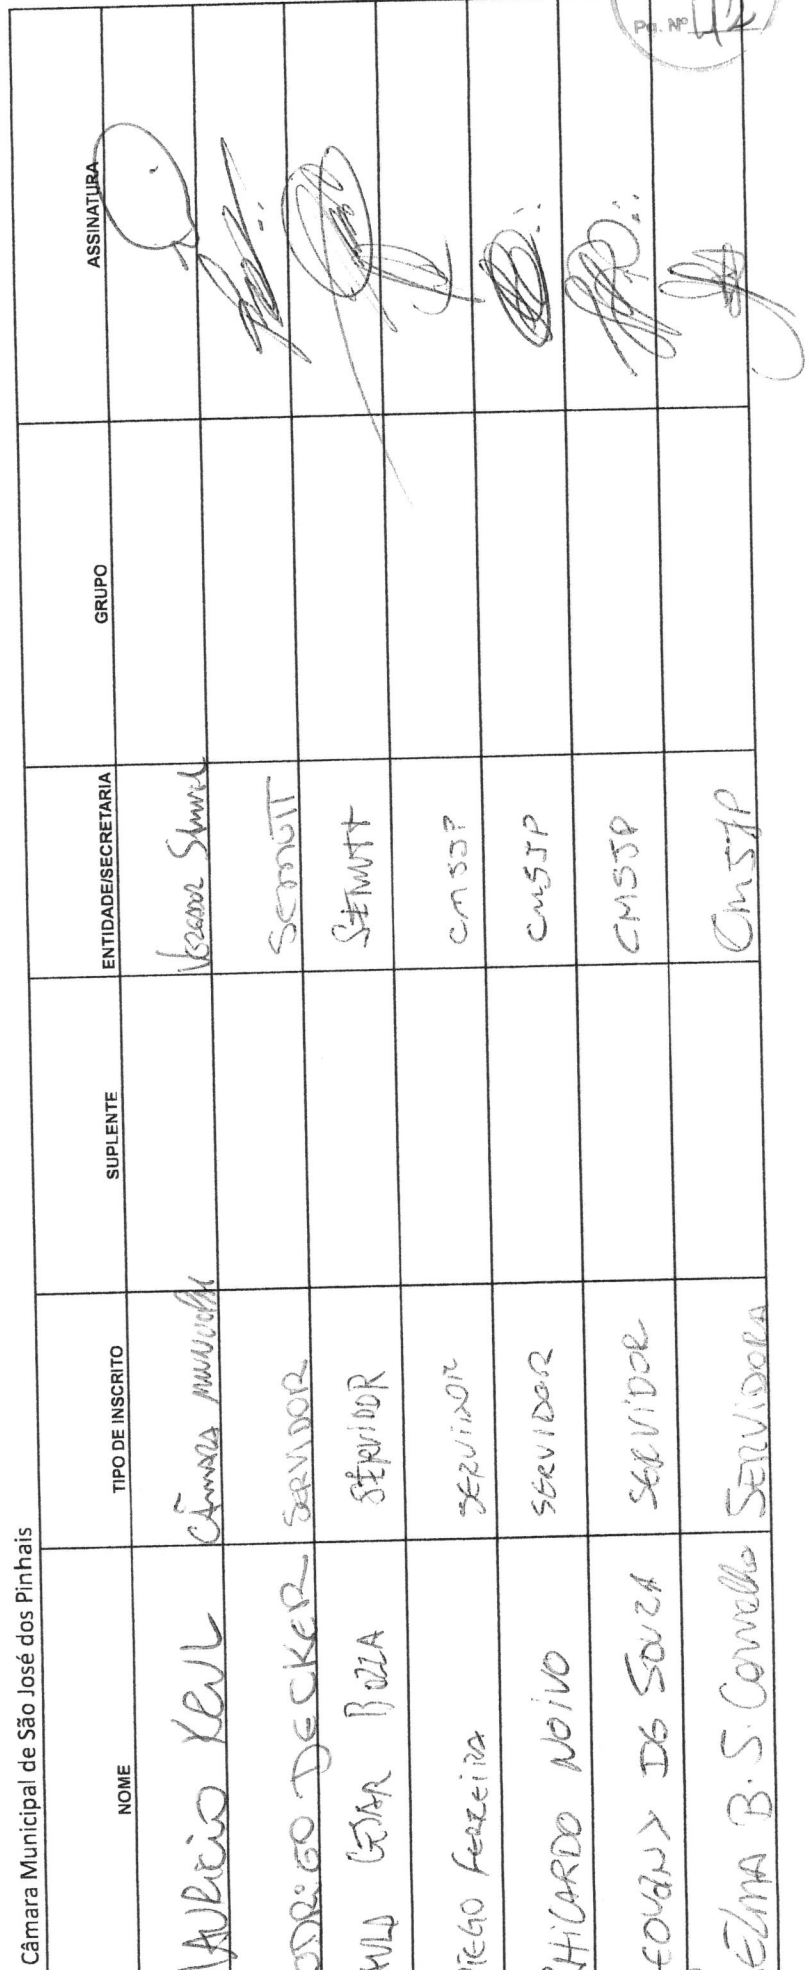 Câmara Municipal de São José dos Pinhais
NOME TIPO DE INSCRITO SUPLENTE ENTIDADE/SECRETARIA GRUPO ASSINATURA
AURICIO KEUL CÂMARA MUNICIPAL VEREADOR
ODRIGO DECKER SERVIDOR SEMUTT
CESAR BOZZA SERVIDOR SEMUTT
IEGO FERREIRA SERVIDOR CMSJP
HICARDO NOIVO SERVIDOR CMSJP
DE SOUZA SERVIDOR CMSJP
ELMA B. S. Carvalho SERVIDORA CMSJP
Pg. Nº